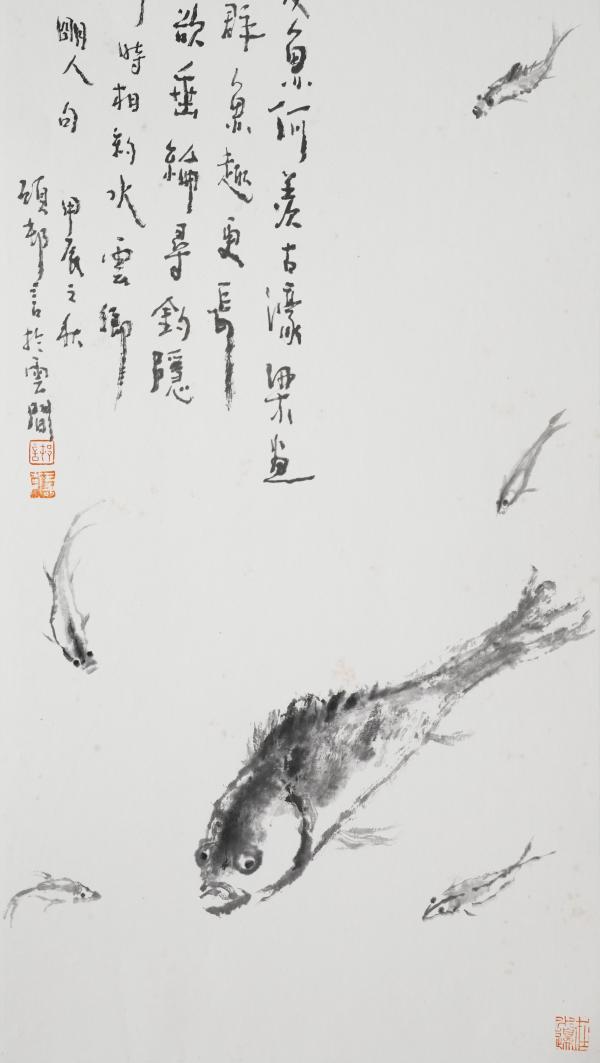 魚何羨古濠梁畫
群魚趣更長
欲垂綸尋釣隱
時相約水雲鄉
明人句 甲辰之秋
顧邨言於雲間